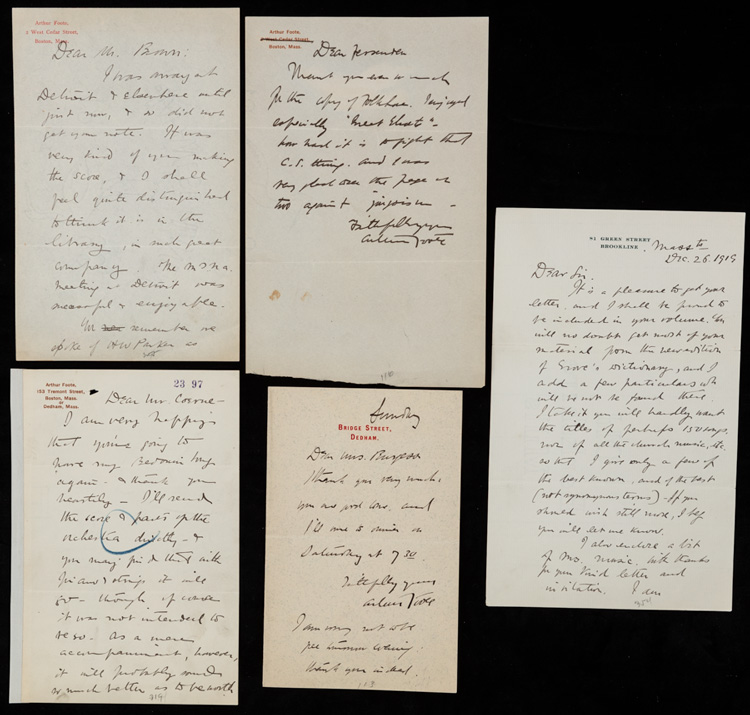 Arthur Foote,
2 West Cedar Street,
Boston, Mass.
Dear Mr. Brown:
I was away at
Detroit & elsewhere until
just now, & so did not
get your note. It was
very kind of you making
the score, & I shall
feel quite distinguished
to think it is in the
library, in such great
company. The M.T.N.A.
meeting at Detroit was
successful & enjoyable.
remember we
spoke of H W Parker as
Arthur Foote,
2 West Cedar Street,
Boston, Mass.
Dear Fessenden
Thank you ever so much
for the copy of I enjoyed
especially
how hard it is to fight that
C.S. thing. and I was
very glad over the page or
two against jingoism -
Faithfully yours
Arthur Foote
81 GREEN STREET
BROOKLINE, Mass
Dec. 26. 1919
Dear Sir.
It is a pleasure to get your
letter, and I shall be proud to
be included in your volume. You
will no doubt get most of your
material from the new edition
of Grove's dictionary, and I
add a few particulars wh
will not be found there.
I take it you will hardly want
the titles of perhaps 150 songs,
nor of all the church music, etc.
so that I give only a few of
the best known, and of the best
(not synonymous terms). If you
should wish still more, I beg
you will let me know.
I also enclose a bit
of Ms. music. With thanks
for your kind letter and
invitation. I am
Arthur Foote,
153 Tremont Street,
Boston, Mass.
or
Dedham, Mass.
23 97
Dear Mr Coerne -
I am very happy
that you're going to
have my Bedouin Song
again - & thank you
heartily - I'll send
the score & parts of the
orchestra directly - &
you may find that with
piano & strings it will
go - though of course
it was not intended to
be so. As a mere
accompaniment, however,
it will probably sound
so much better as to be worth
319
Sunday
BRIDGE STREET,
DEDHAM.
Dear Mrs. Burgess
Thank you very much:
you are good
I'll
Saturday at 7 30
Faithfully yours
Arthur Foote
I am sorry not to
coming:
thank you indeed.